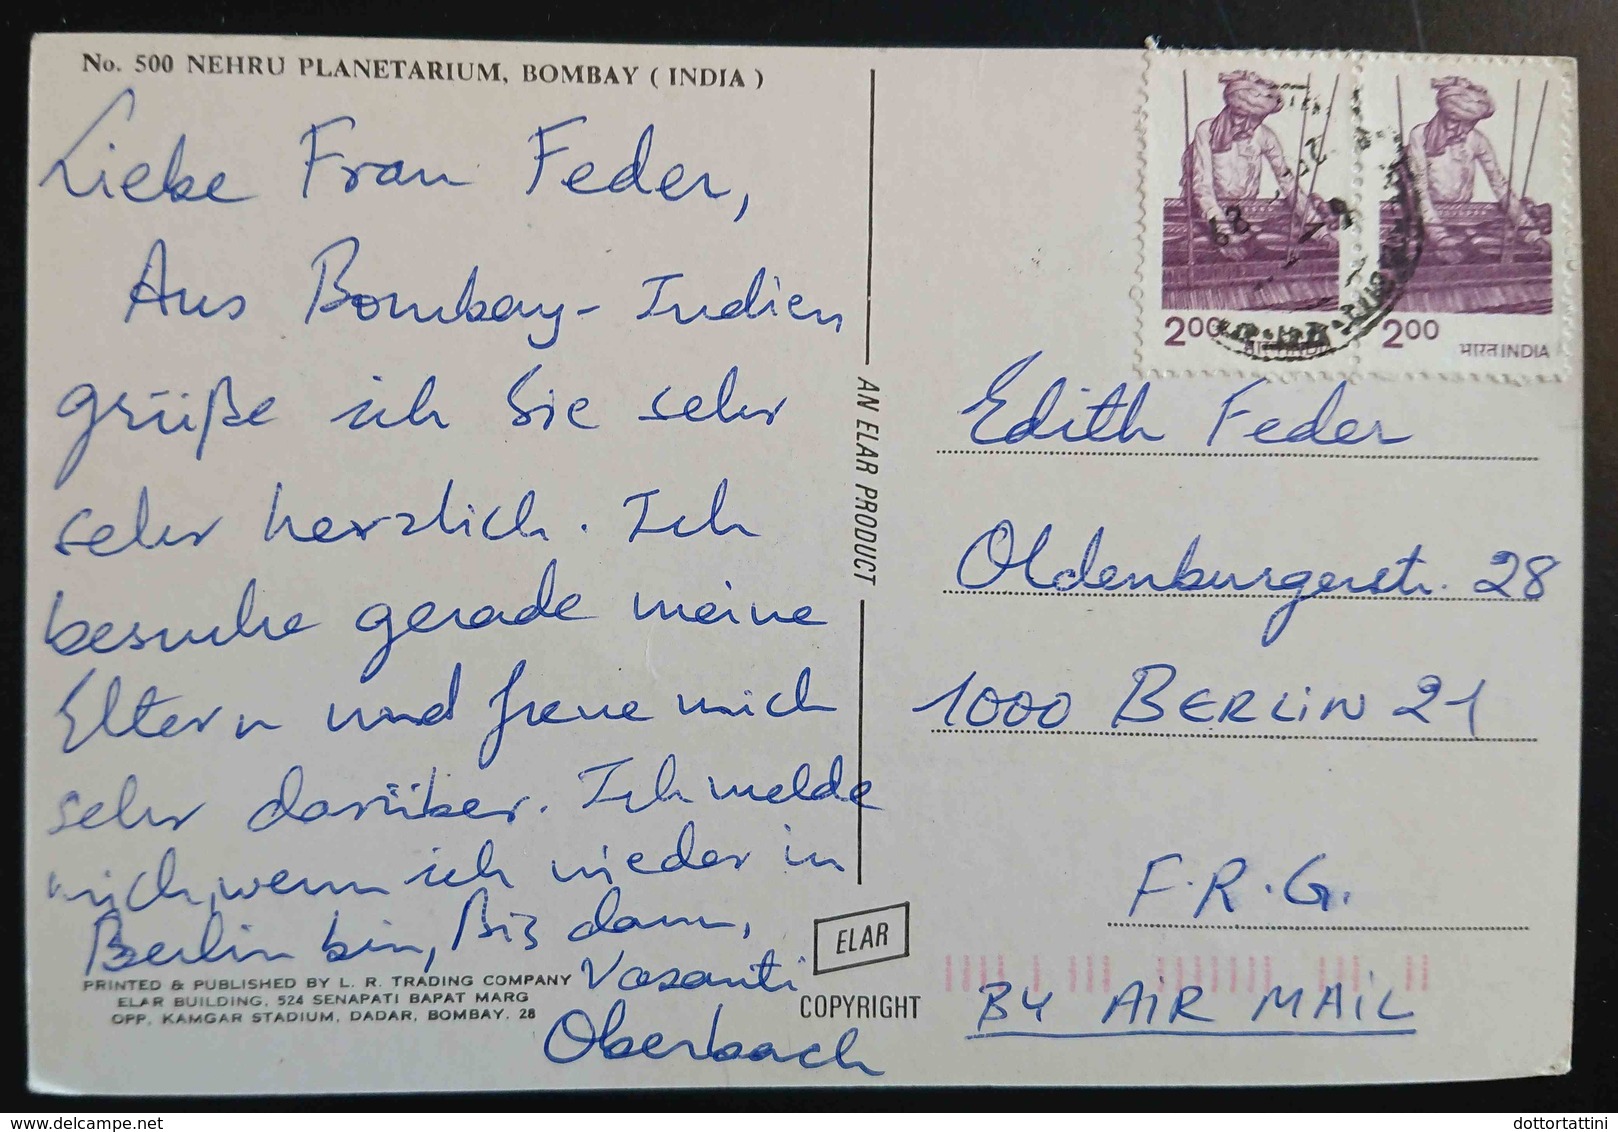 No. 500 NEHRU PLANETARIUM, BOMBAY ( INDIA )
Liebe Frau Feder,
Aus Bombay - Indien
grüße ich Sie sehr
sehr herzlich. Ich
besuche gerade meine
Eltern und freue mich
sehr darüber. Ich melde
mich, wenn ich wieder in
Berlin bin, Bis dann,
Vasanti
Oberbach
PRINTED & PUBLISHED BY L. R. TRADING COMPANY
ELAR BUILDING, 524 SENAPATI BAPAT MARG
OPP. KAMGAR STADIUM, DADAR, BOMBAY. 28
AN ELAR PRODUCT
ELAR
COPYRIGHT
200
भारत INDIA
200
भारत INDIA
Edith Feder
Oldenburgerstr. 28
1000 BERLIN 21
F.R.G.
BY AIR MAIL
www.delcampe.net
dottortattini